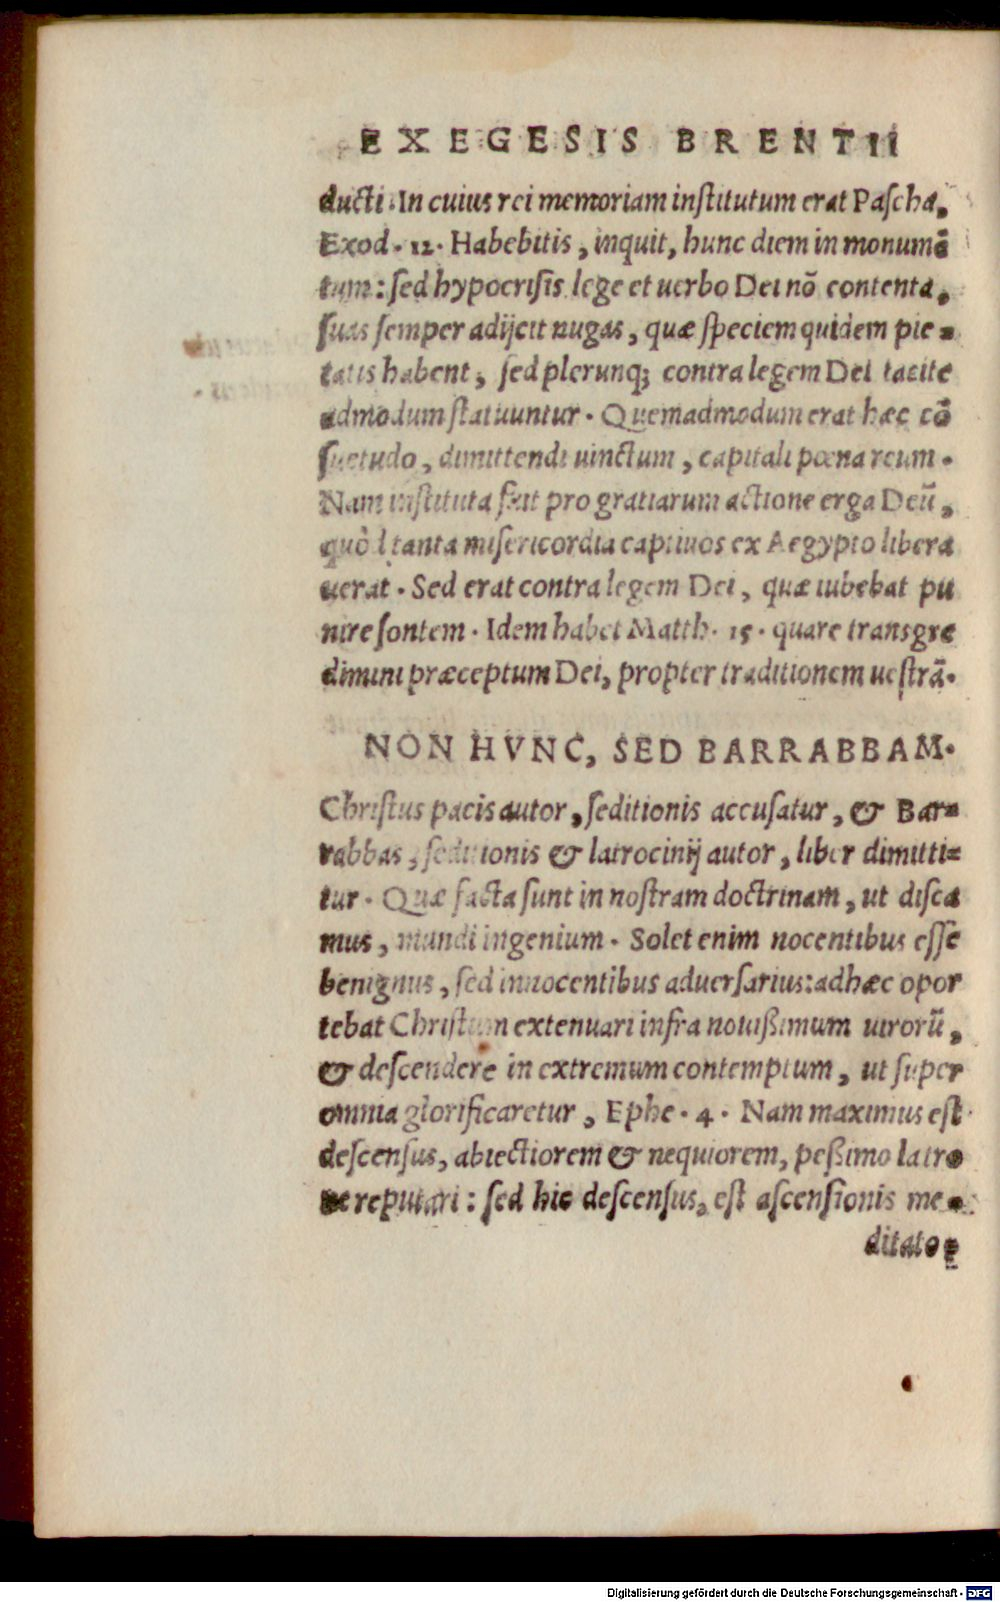 EXEGESIS BRENTII
ducti. In cuius rei memoriam institutum erat Pascha,
Exod. 12. Habebitis, inquit, hunc diem in monumē
tum: sed hypocrisis lege et uerbo Dei nō contenta,
suas semper adijcit nugas, quæ speciem quidem pie=
tatis habent, sed plerunq; contra legem Dei tacite
admodum statuuntur. Quemadmodum erat hæc cō
suetudo, dimittendi uinctum, capitali pœna reum.
Nam instituta fuit pro gratiarum actione erga Deū,
quòd tanta misericordia captiuos ex Aegypto libera
uerat. Sed erat contra legem Dei, quæ iubebat pu
nire sontem. Idem habet Matth. 15. quare transgre
dimini præceptum Dei, propter traditionem uestrā.
NON HVNC, SED BARRABBAM.
Christus pacis autor, seditionis accusatur, & Bar=
rabbas, seditionis & latrocinij autor, liber dimitti=
tur. Quæ facta sunt in nostram doctrinam, ut disca
mus, mundi ingenium. Solet enim nocentibus esse
benignus, sed innocentibus aduersarius: adhæc opor
tebat Christum extenuari infra nouißimum uirorū,
& descendere in extremum contemptum, ut super
omnia glorificaretur, Ephe. 4. Nam maximus est
descensus, abiectiorem & nequiorem, peßimo latro
ne reputari: sed hic descensus, est ascensionis me=
ditato=
Digitalisierung gefördert durch die Deutsche Forschungsgemeinschaft - DFG